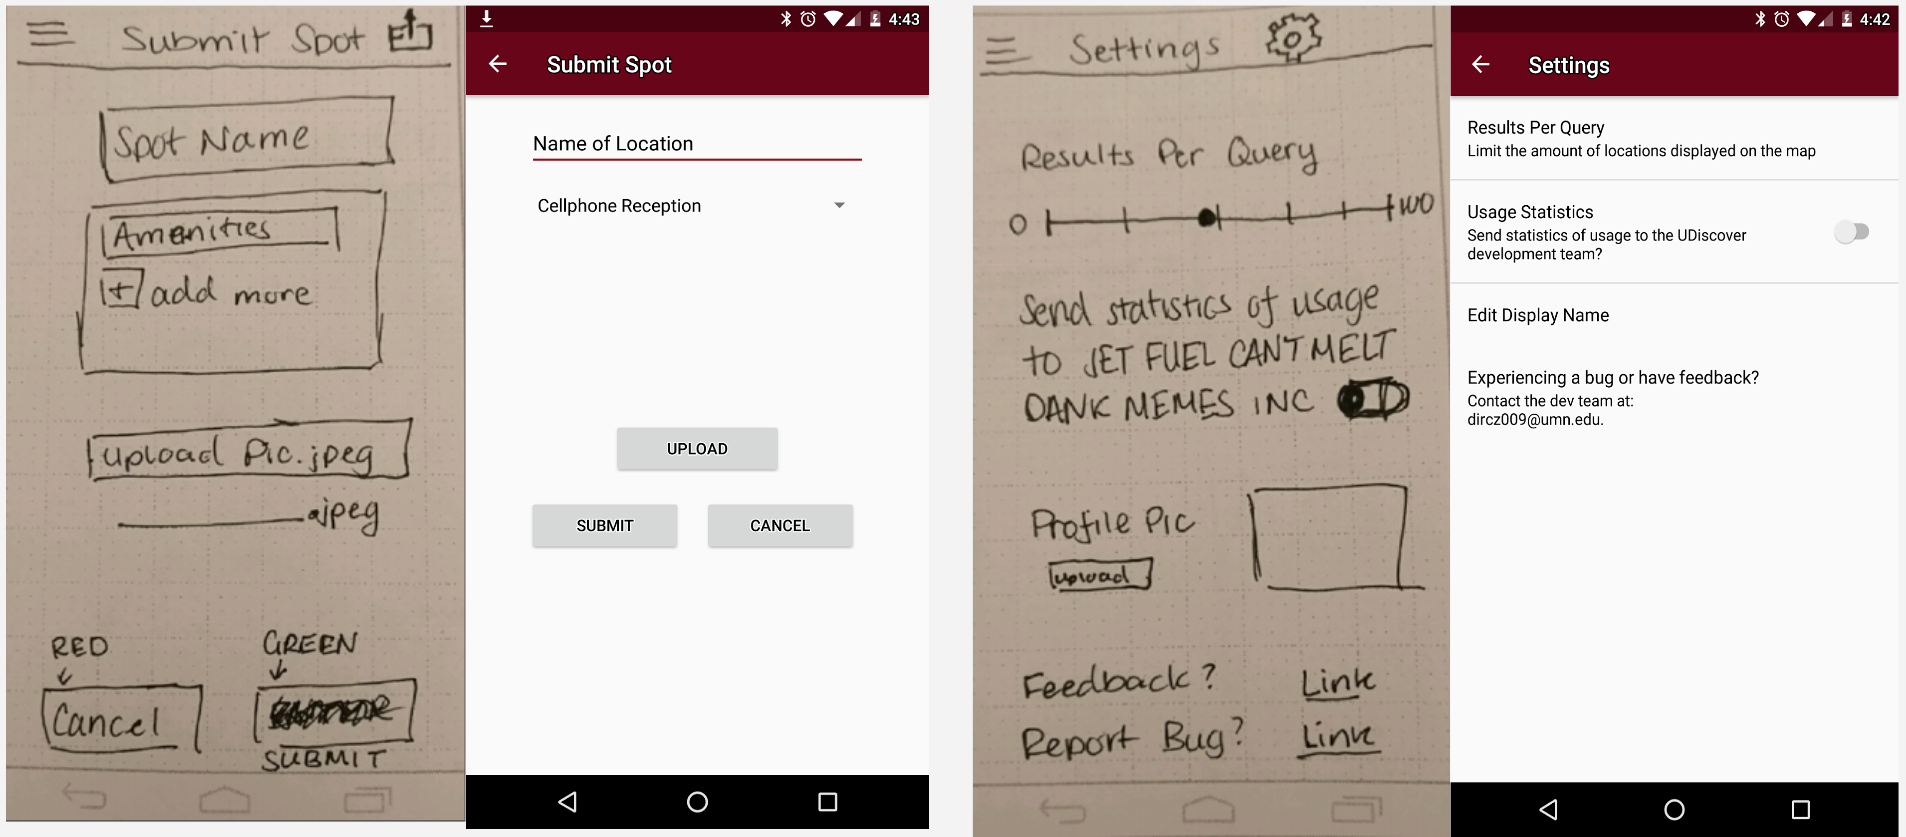 Submit Spot
Spot Name
Amenities
+ add more
upload Pic.jpeg
.jpeg
RED
GREEN
Cancel
SUBMIT
4:43
Submit Spot
Name of Location
Cellphone Reception
UPLOAD
SUBMIT
CANCEL
Settings
Results Per Query
0
100
Send statistics of usage
to JET FUEL CANT MELT
DANK MEMES INC
Profile Pic
upload
Feedback? Link
Report Bug? Link
4:42
Settings
Results Per Query
Limit the amount of locations displayed on the map
Usage Statistics
Send statistics of usage to the UDiscover
development team?
Edit Display Name
Experiencing a bug or have feedback?
Contact the dev team at:
dircz009@umn.edu.